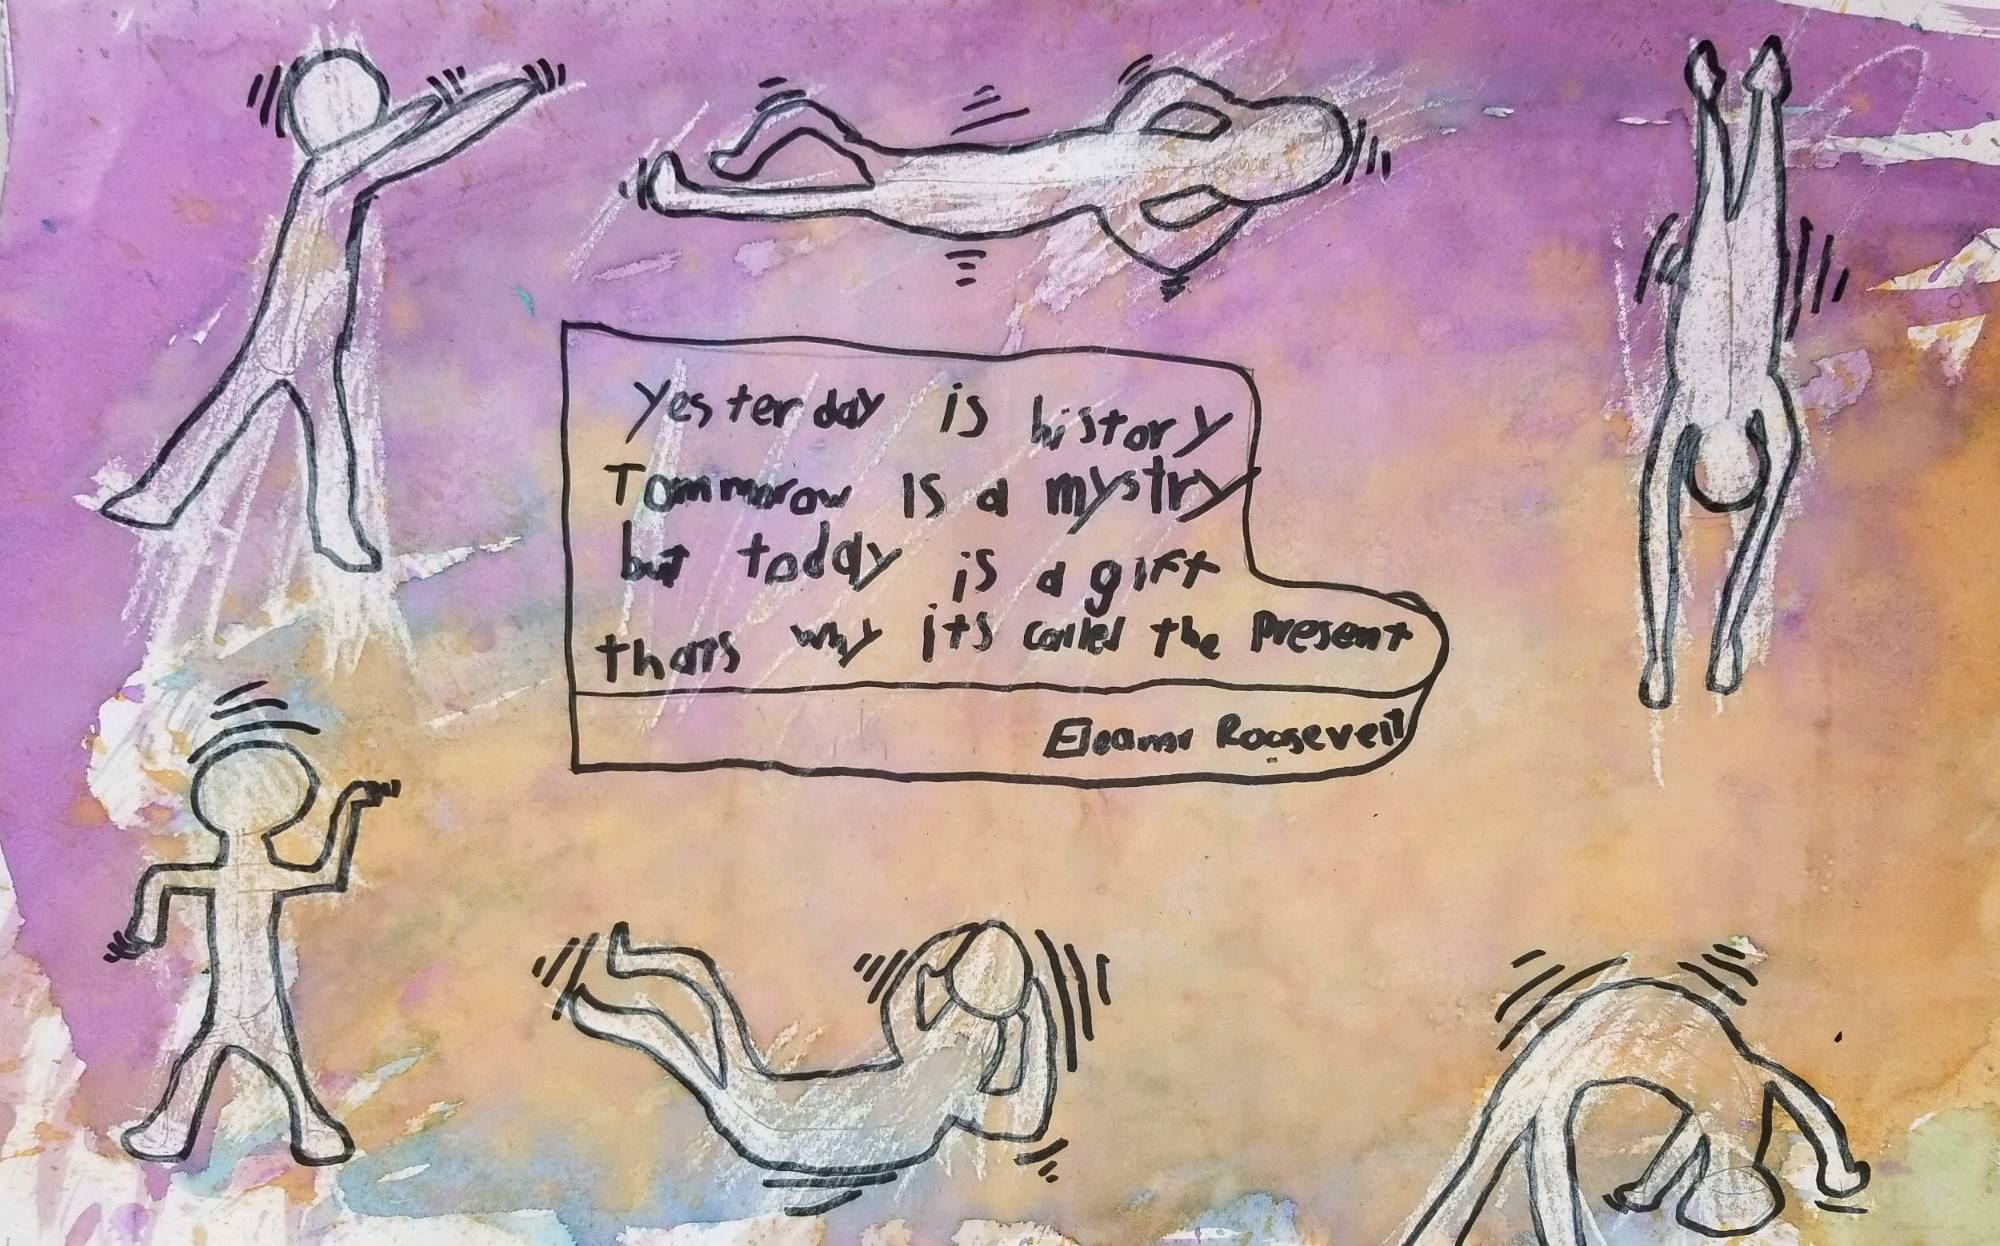 Yesterday is history
Tommorow is a mystry
but today is a gift
thats why its called the Present
Eleanor Roosevelt